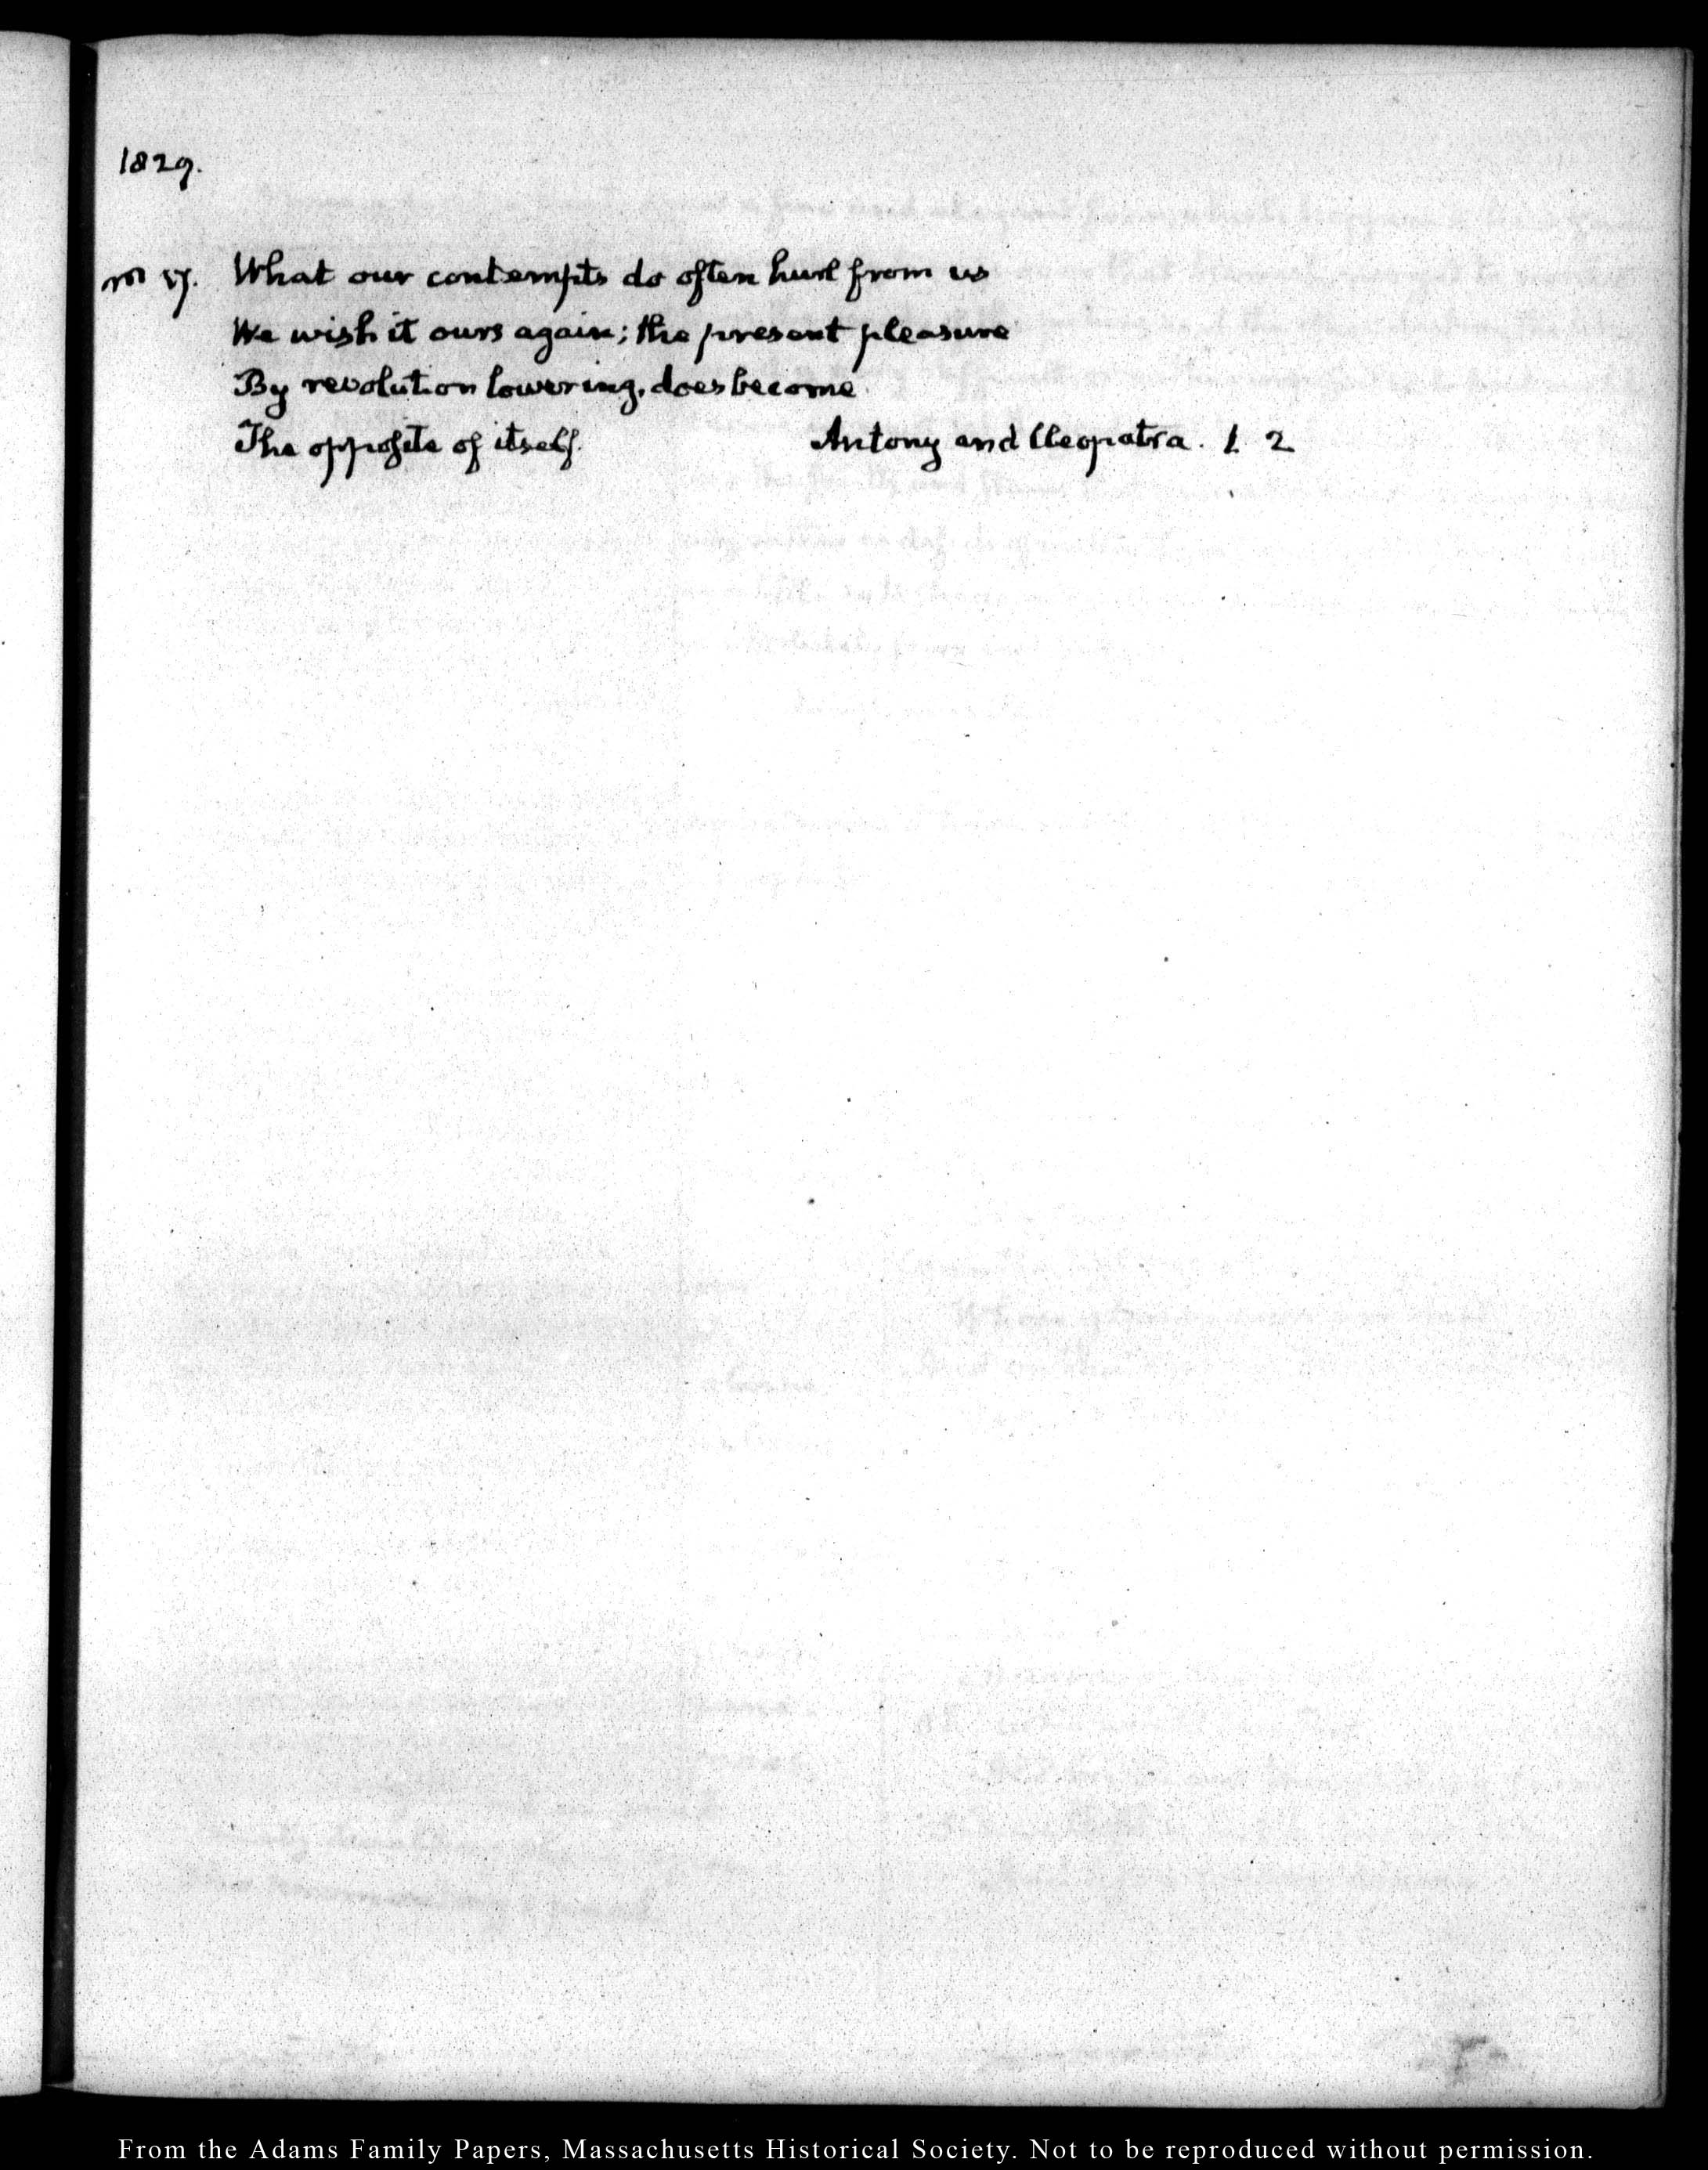 1829.
VI 17. What our contempts do often hurl from us
We wish it ours again; the present pleasure
By revolution lowering, does become
The opposite of itself. Antony and Cleopatra. 1. 2
From the Adams Family Papers, Massachusetts Historical Society. Not to be reproduced without permission.